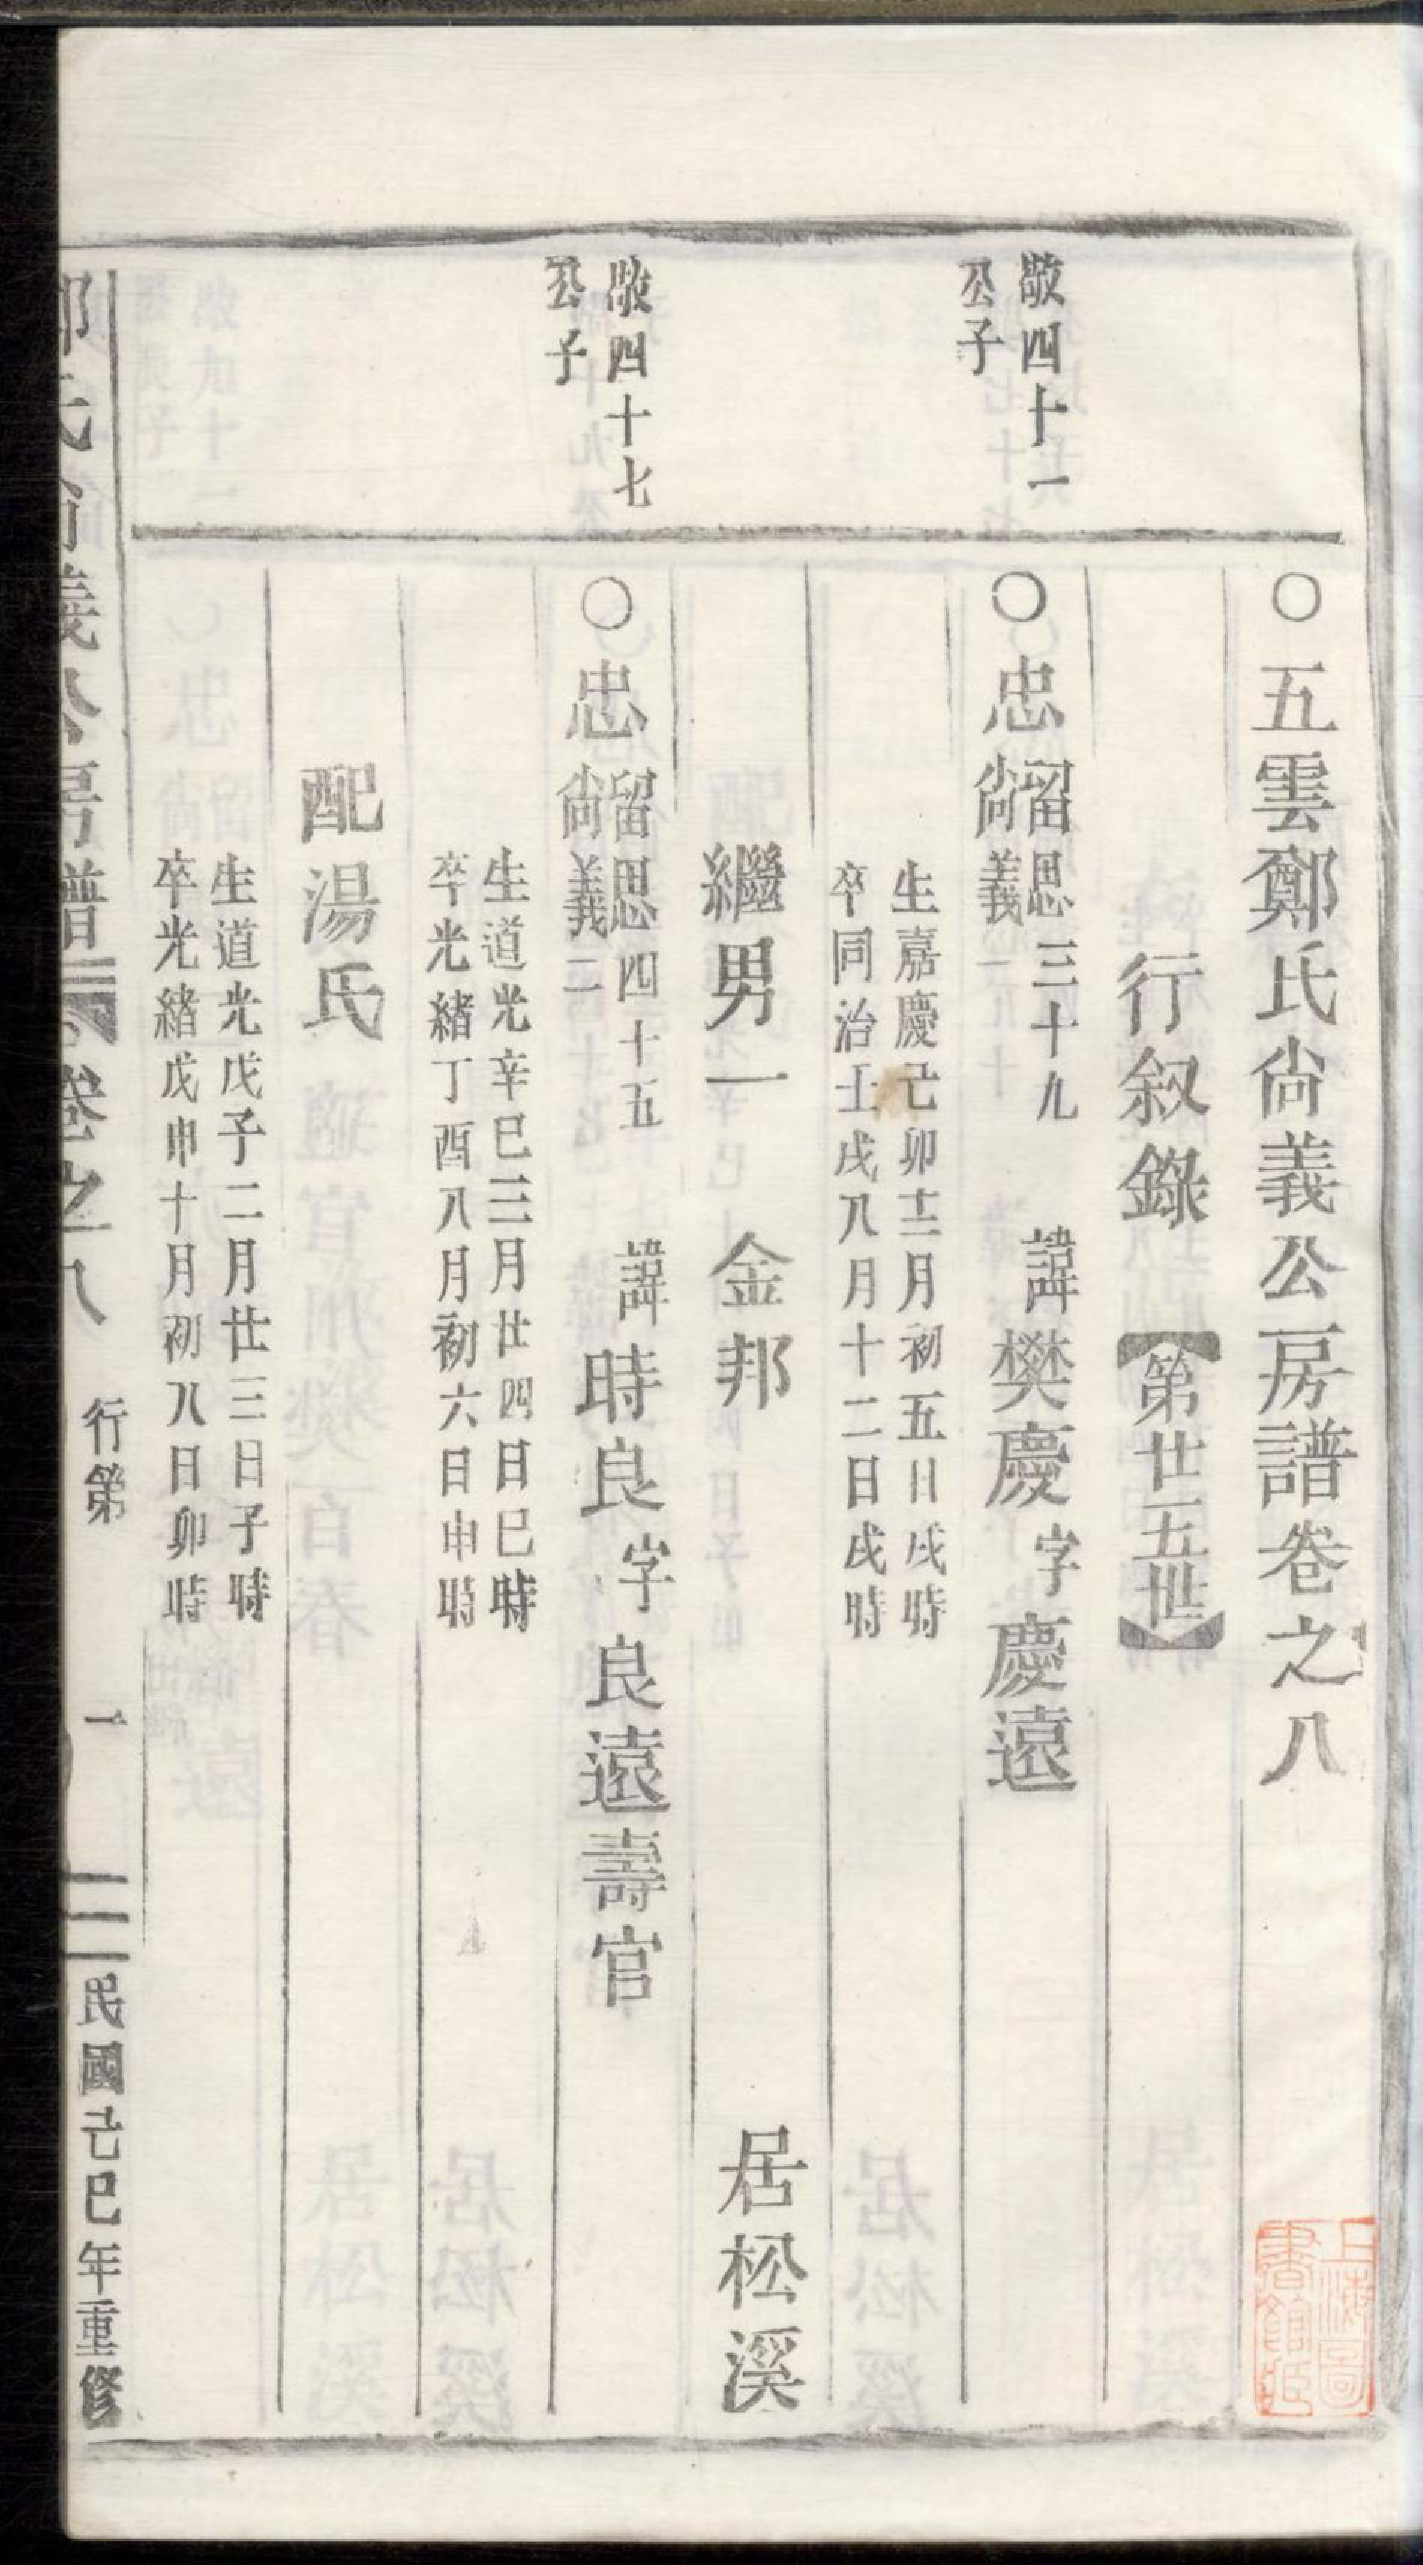 ○五雲鄭氏尙義公房譜卷之八
行叙錄【第廿五世】
敬四十一
公子
○忠留思三十九 諱樊慶字慶遠
尙義一
生嘉慶己卯十二月初五日戌時
卒同治壬戌八月十二日戌時
繼男一 金邦 居松溪
敬四十七
公子
○忠留思四十五 諱時良字良遠壽官
尙義二
生道光辛巳三月廿四日巳時
卒光緒丁酉八月初六日申時
配湯氏
生道光戊子二月廿三日子時
卒光緒戊申十月初八日卯時
鄭氏尙義公房譜 卷之八 行第 一 民國己巳年重修
上海圖
書館藏